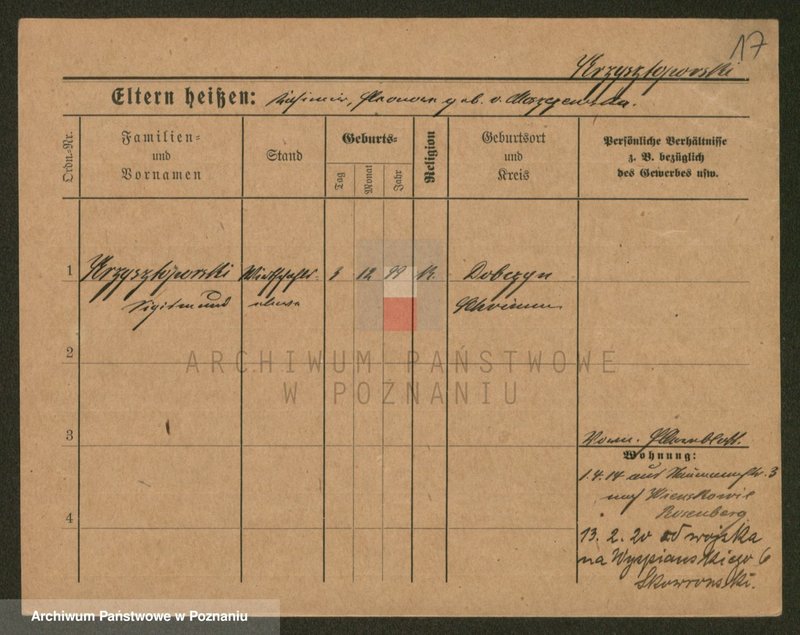 17
Krzysztoporski
Eltern heißen: Kasimir, Eleonora geb. v.
Ordn.-Nr.
Familien=
und
Vornamen
Stand
Geburts=
Tag
Monat
Jahr
Religion
Geburtsort
und
Kreis
Persönliche Verhältnisse
z. B. bezüglich
des Gewerbes usw.
1 Krzysztoporski Wirtschafts- 8 12 99 k. Dobczyn
Sigismund eleve Schrimm
2
ARCHIWUM PAŃSTWOWE
W POZNANIU
3
Wohnung:
1.4.14 aus Naumannstr. 3
nach
Rosenberg
4
13. 2. 20 od wojska
na Wyspianskiego 6
Skowronski.
Archiwum Państwowe w Poznaniu